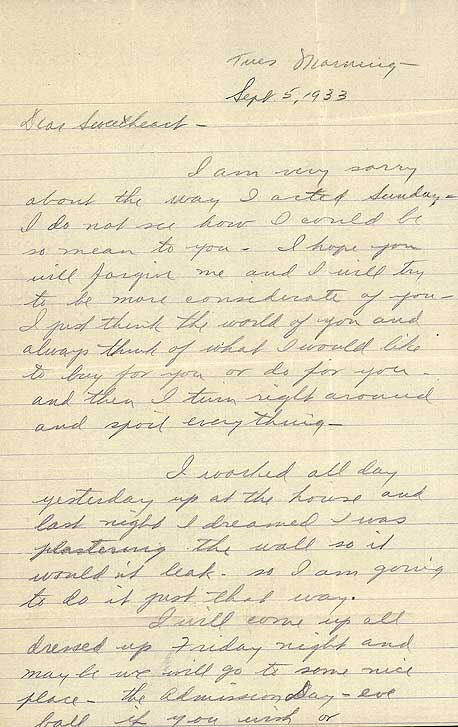 Tues Morning-
Sept 5, 1933
Dear Sweetheart-
I am very sorry
about the way I acted Sunday-
I do not see how I could be
so mean to you- I hope you
will forgive me and I will try
to be more considerate of you-
I just think the world of you and
always think of what I would like
to buy for you or do for you-
and then I turn right around
and spoil everything-
I worked all day
yesterday up at the house and
last night I dreamed I was
plastering the wall so it
would'nt leak- so I am going
to do it just that way.
I will come up all
dressed up Friday night and
maybe we will go to some nice
place- the Admission Day- eve
ball if you wish or